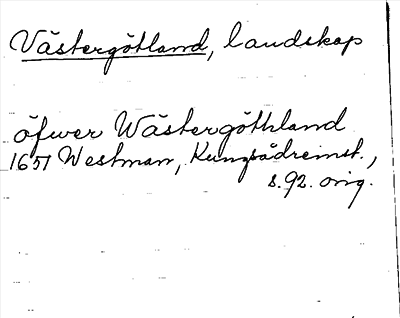 Västergötland, landskap
öfwer Wästergöthland
1651 Westman, Kungsådreinst.,
s. 92. orig.